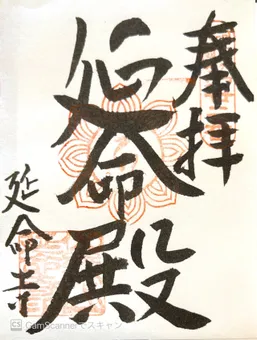 奉拝
延命殿
延命寺
CS CamScannerでスキャン